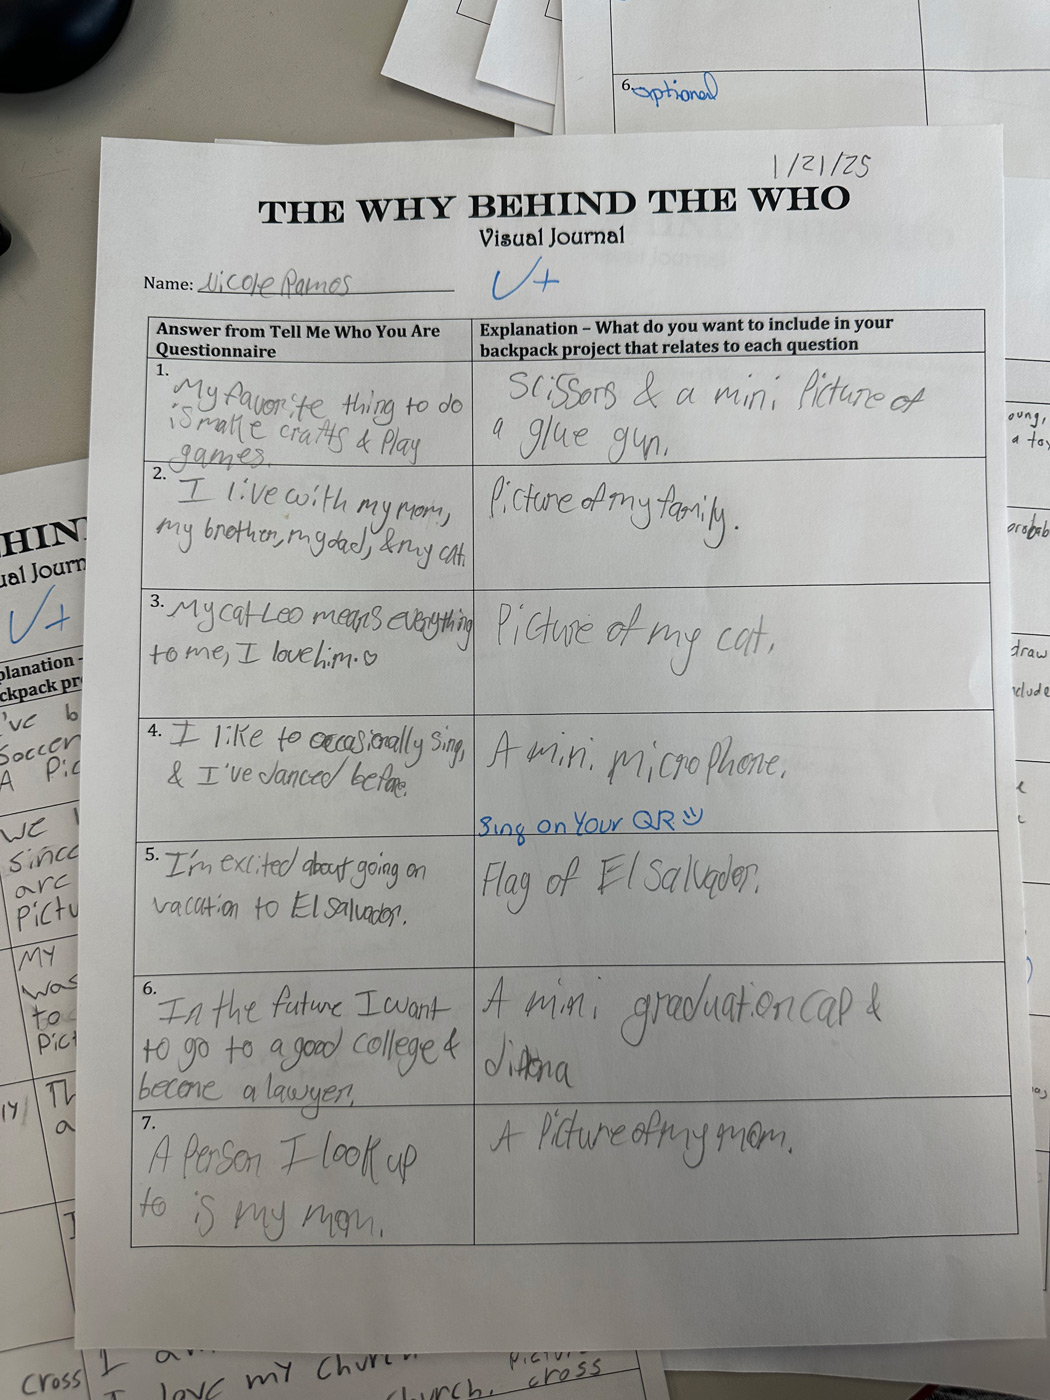 6. optional
1/21/25
THE WHY BEHIND THE WHO
Visual Journal
Name: Nicole Ramos
V+
Answer from Tell Me Who You Are
Questionnaire
Explanation – What do you want to include in your
backpack project that relates to each question
1.
My favorite thing to do
is make crafts & Play
games.
Scissors & a mini Picture of
a glue gun.
2.
I live with my mom,
my brother, my dad, & my cat.
Picture of my family.
3. My cat Leo means everything
to me, I love him. ♡
Picture of my cat.
4. I like to occasionally sing,
& I've danced before.
A mini microphone.
Sing on Your QR
5. I'm excited about going on
vacation to El Salvador.
Flag of El Salvador.
6.
In the future I want
to go to a good college &
become a lawyer.
A mini graduation cap &
7.
A Person I look up
to is my mom.
A Picture of my mom.
HIN
ual Journ
V+
planation –
ckpack pr
've b
Soccer
A Pic
we
since
are
Pictu
MY
was
to
Pict
Th
a
oung,
a toy
probab
draw
nclude
cross
I love my church
church. cross